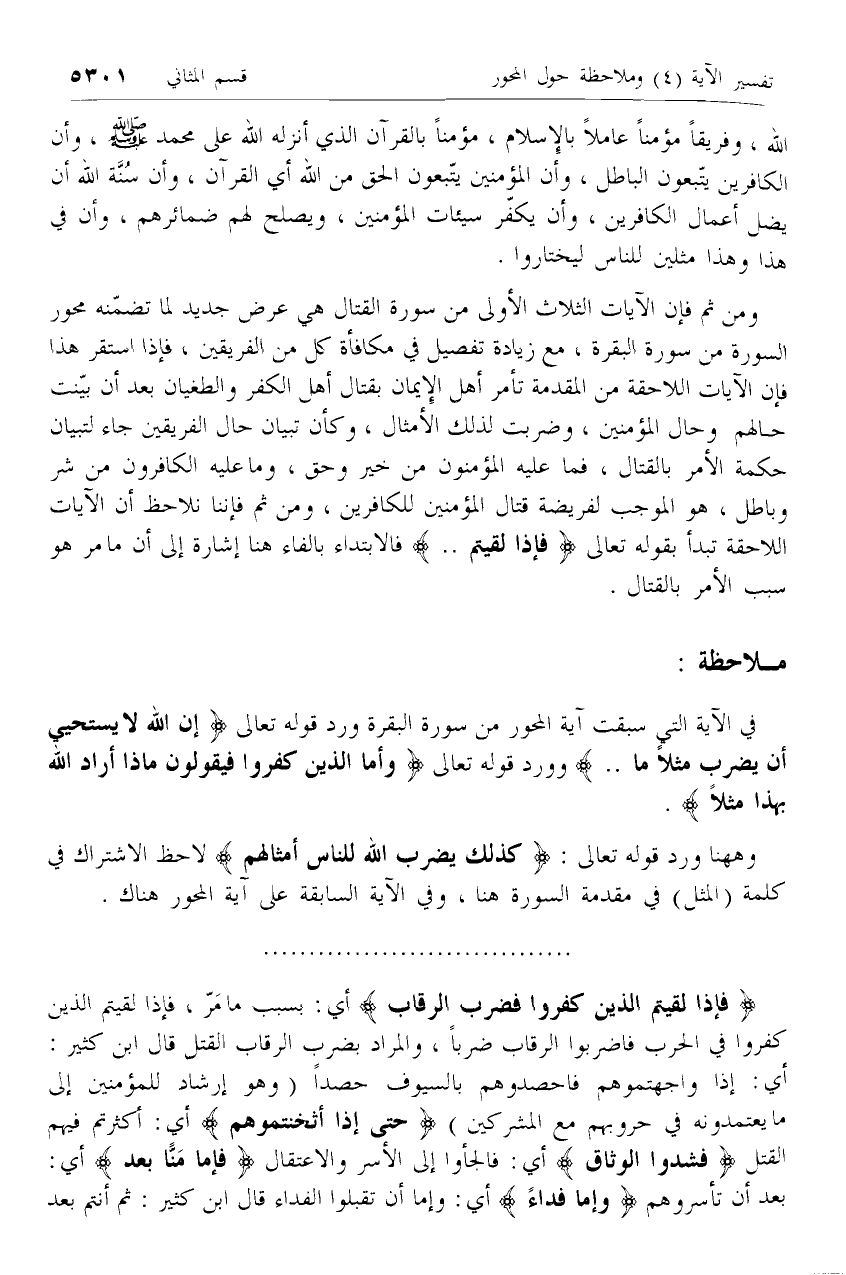 تفسير الآية (٤) وملاحظة حول المحور قسم المثاني ٥٣٠١
الله ، وفريقاً مؤمناً عاملاً بالإسلام ، مؤمناً بالقرآن الذي أنزله الله على محمد ﷺ ، وأن
الكافرين يتّبعون الباطل ، وأن المؤمنين يتّبعون الحق من الله أي القرآن ، وأن سُنَّة الله أن
يضل أعمال الكافرين ، وأن يكفّر سيئات المؤمنين ، ويصلح لهم ضمائرهم ، وأن في
هذا وهذا مثلين للناس ليختاروا .
ومن ثم فإن الآيات الثلاث الأولى من سورة القتال هي عرض جديد لما تضمّنه محور
السورة من سورة البقرة ، مع زيادة تفصيل في مكافأة كل من الفريقين ، فإذا استقر هذا
فإن الآيات اللاحقة من المقدمة تأمر أهل الإيمان بقتال أهل الكفر والطغيان بعد أن بيّنت
حالهم وحال المؤمنين ، وضربت لذلك الأمثال ، وكأن تبيان حال الفريقين جاء لتبيان
حكمة الأمر بالقتال ، فما عليه المؤمنون من خير وحق ، وما عليه الكافرون من شر
وباطل ، هو الموجب لفريضة قتال المؤمنين للكافرين ، ومن ثم فإننا نلاحظ أن الآيات
اللاحقة تبدأ بقوله تعالى ﴿ فإذا لقيتم .. ﴾ فالابتداء بالفاء هنا إشارة إلى أن ما مر هو
سبب الأمر بالقتال .
مـلاحظة :
في الآية التي سبقت آية المحور من سورة البقرة ورد قوله تعالى ﴿ إن الله لا يستحيي
أن يضرب مثلاً ما .. ﴾ وورد قوله تعالى ﴿ وأما الذين كفروا فيقولون ماذا أراد الله
بهذا مثلاً ﴾ .
وههنا ورد قوله تعالى : ﴿ كذلك يضرب الله للناس أمثالهم ﴾ لاحظ الاشتراك في
كلمة (المثل) في مقدمة السورة هنا ، وفي الآية السابقة على آية المحور هناك .
..................................
﴿ فإذا لقيتم الذين كفروا فضرب الرقاب ﴾ أي : بسبب ما مَرّ ، فإذا لقيتم الذين
كفروا في الحرب فاضربوا الرقاب ضرباً ، والمراد بضرب الرقاب القتل قال ابن كثير :
أي : إذا واجهتموهم فاحصدوهم بالسيوف حصداً ( وهو إرشاد للمؤمنين إلى
ما يعتمدونه في حروبهم مع المشركين ) ﴿ حتى إذا أثخنتموهم ﴾ أي : أكثرتم فيهم
القتل ﴿ فشدوا الوثاق ﴾ أي : فالجأوا إلى الأسر والاعتقال ﴿ فإما مَنًّا بعد ﴾ أي :
بعد أن تأسروهم ﴿ وإما فداءً ﴾ أي : وإما أن تقبلوا الفداء قال ابن كثير : ثم أنتم بعد